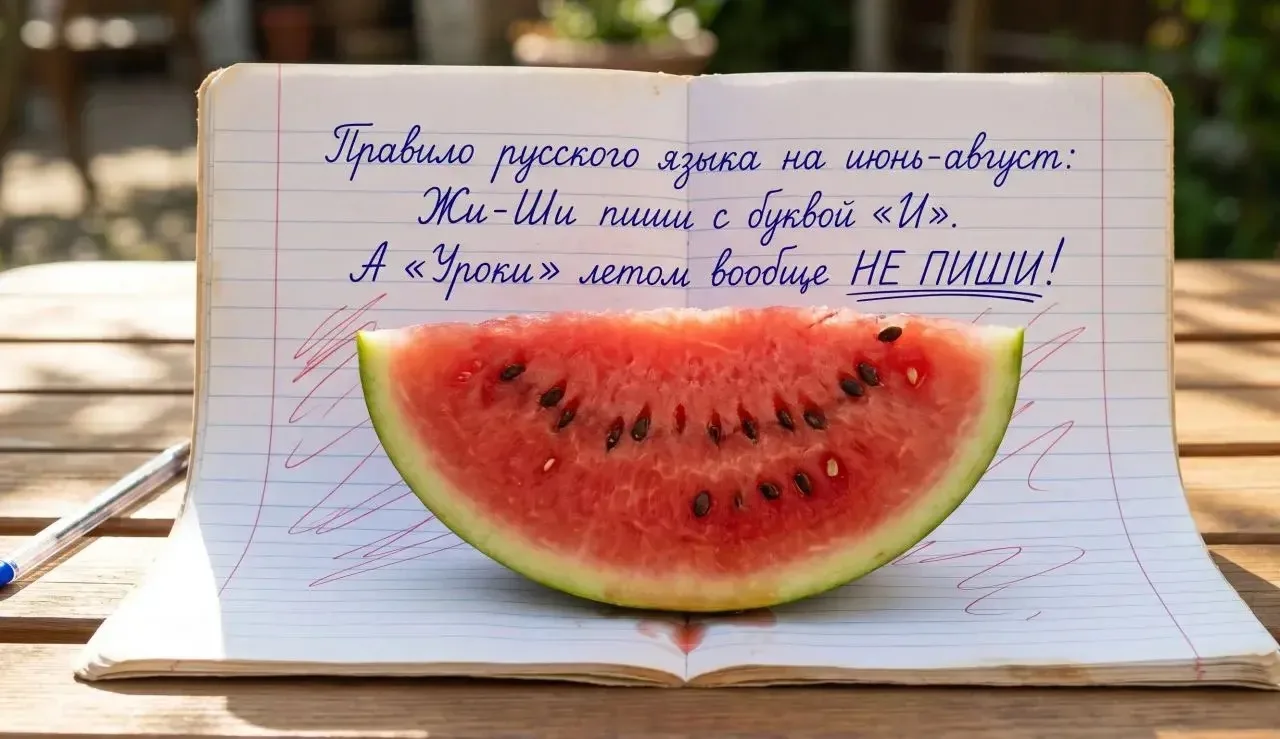 Правило русского языка на июнь-август:
Жи-Ши пиши с буквой «И».
А «Уроки» летом вообще НЕ ПИШИ!